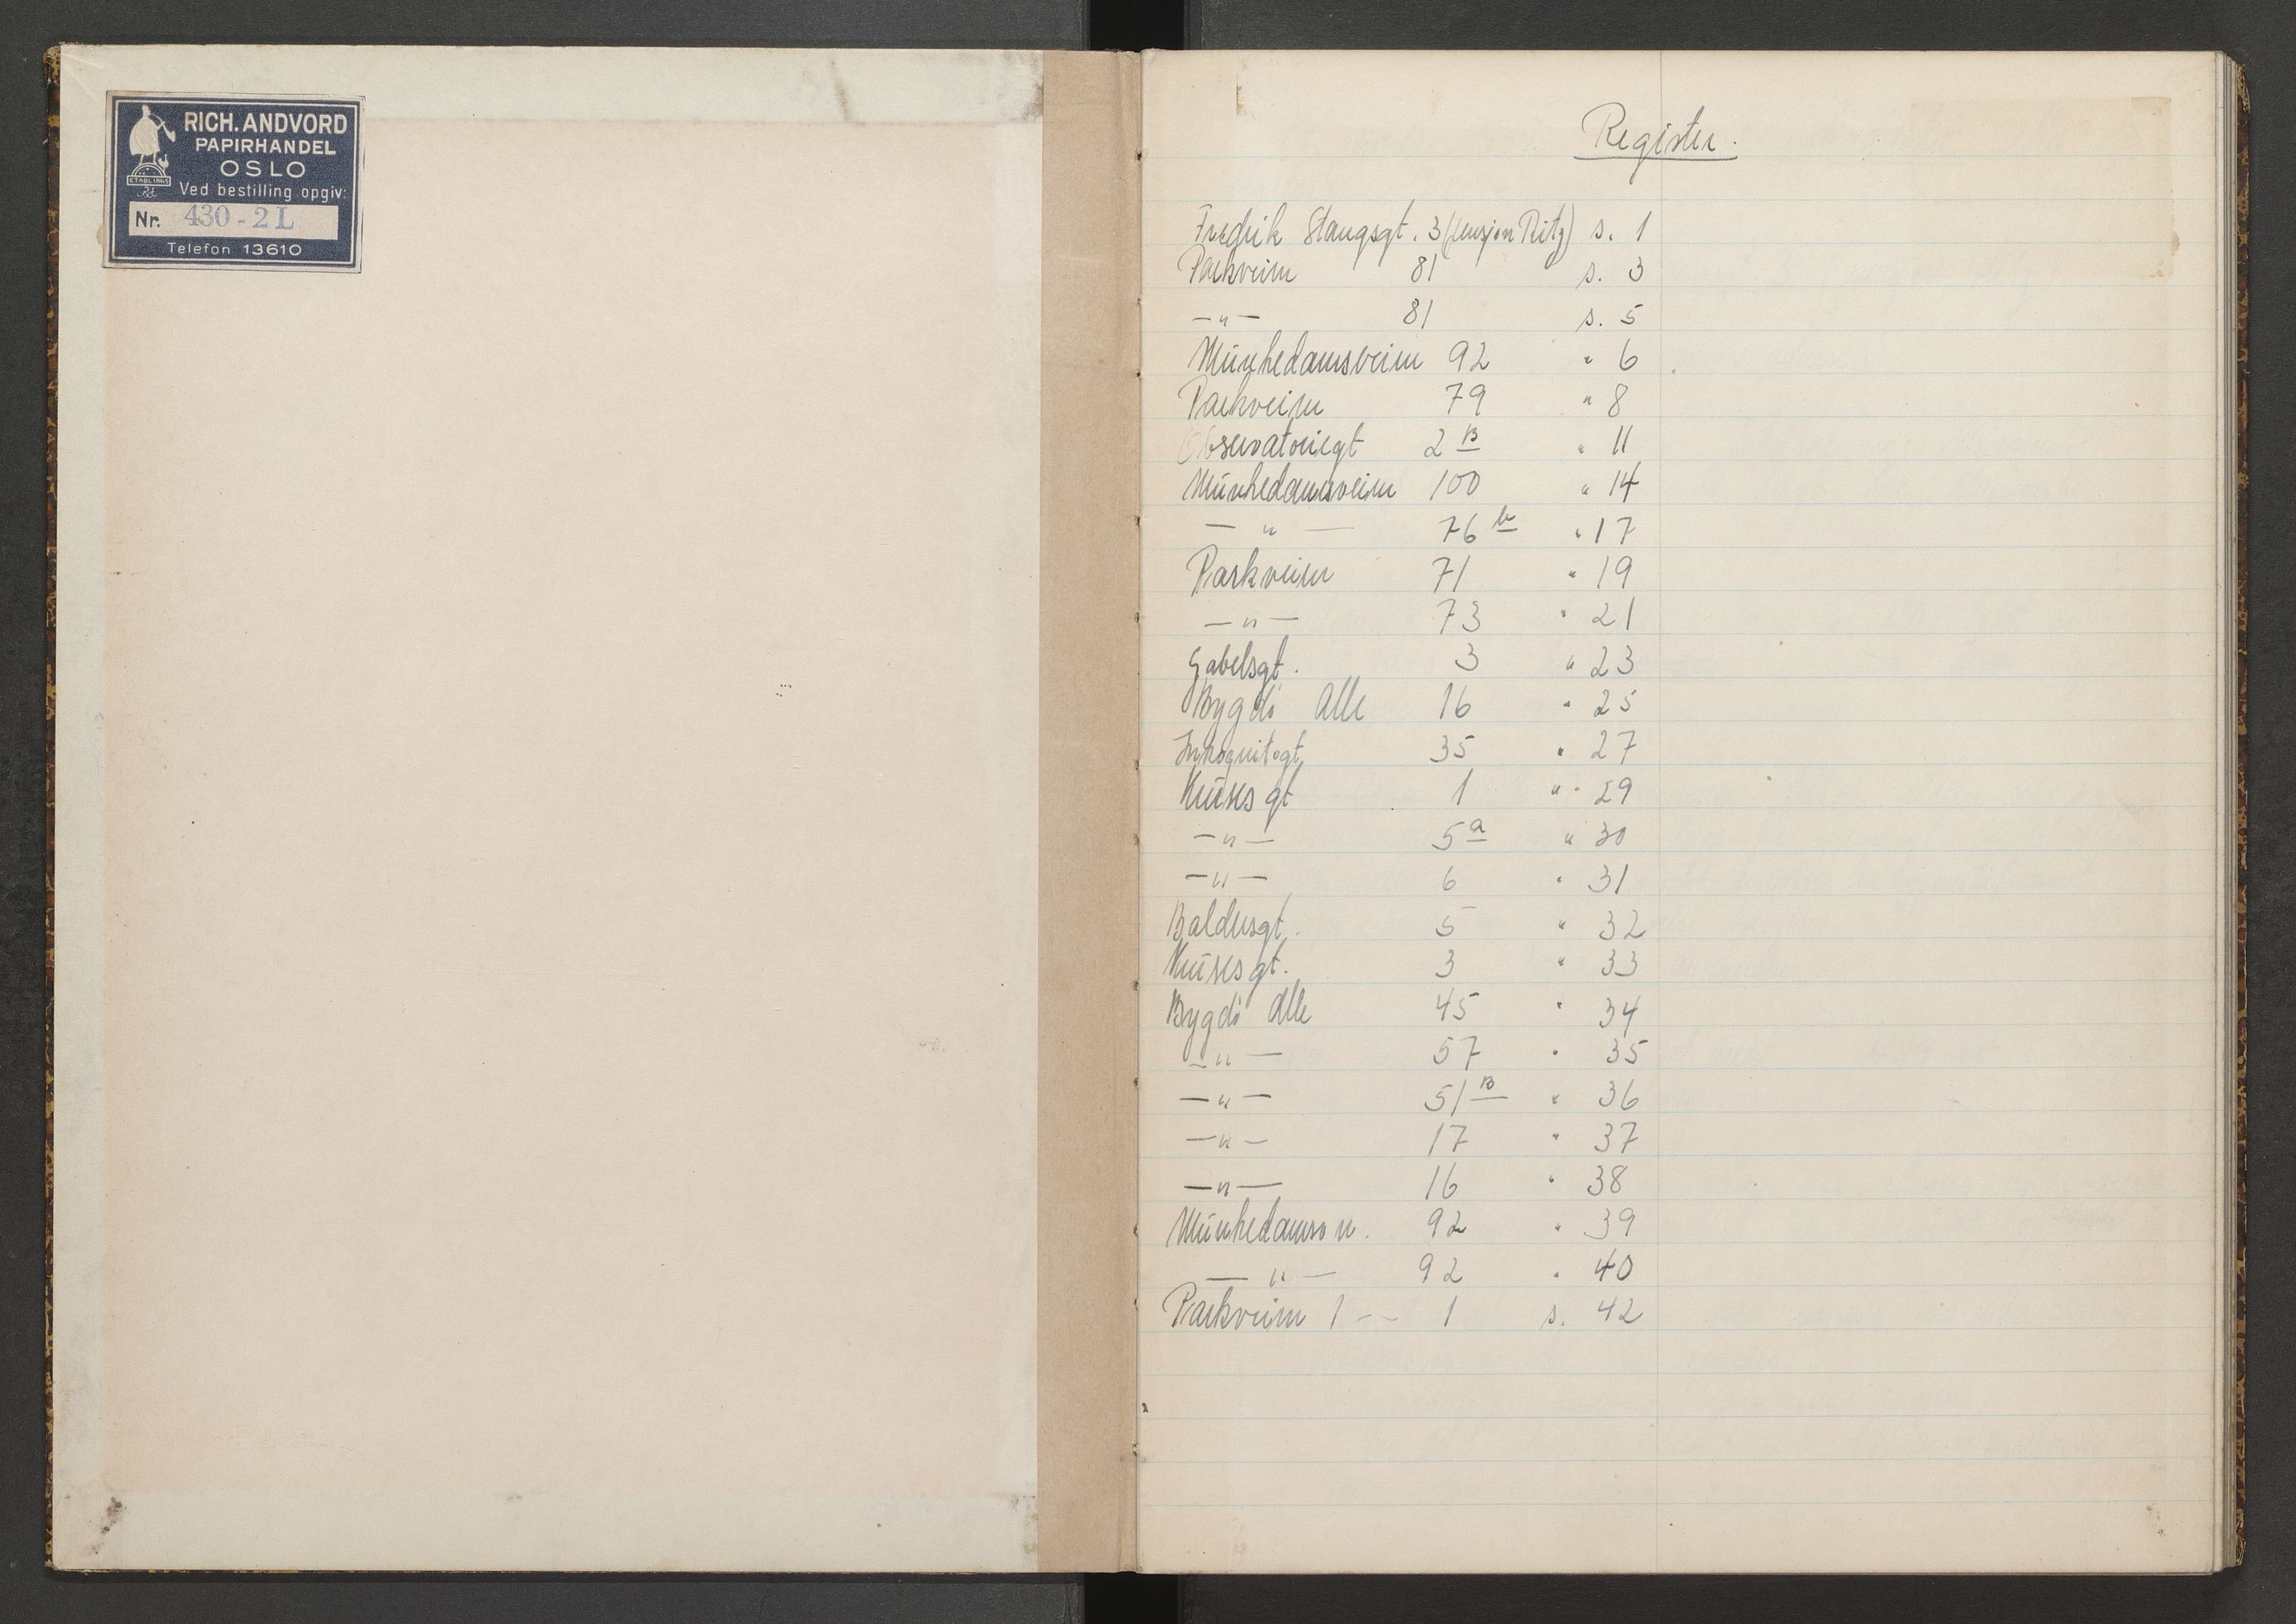 RICH. ANDVORD
PAPIRHANDEL
OSLO
ETABL. 1865
Ved bestilling opgiv:
Nr. 430-2L
Telefon 13610
Register.
Fredrik Stangsgt. 3 (Pensjon Ritz) s. 1
Parkveien 81 s. 3
—"— 81 s. 5
Munkedamsveien 92 " 6
Parkveien 79 " 8
Observatoriegt 2B " 11
Munkedamsveien 100 " 14
—"— 76b " 17
Parkveien 71 " 19
—"— 73 " 21
Gabelsgt. 3 " 23
Bygdö Alle 16 " 25
Inkognitogt 35 " 27
Kruses gt 1 " 29
—"— 5a " 30
—"— 6 " 31
Baldersgt. 5 " 32
Kruses gt. 3 " 33
Bygdö Alle 45 " 34
—"— 57 " 35
—"— 51B " 36
—"— 17 " 37
—"— 16 " 38
Munkedamsv. 92 " 39
—"— 92 " 40
Parkveien 1 -- 1 s. 42